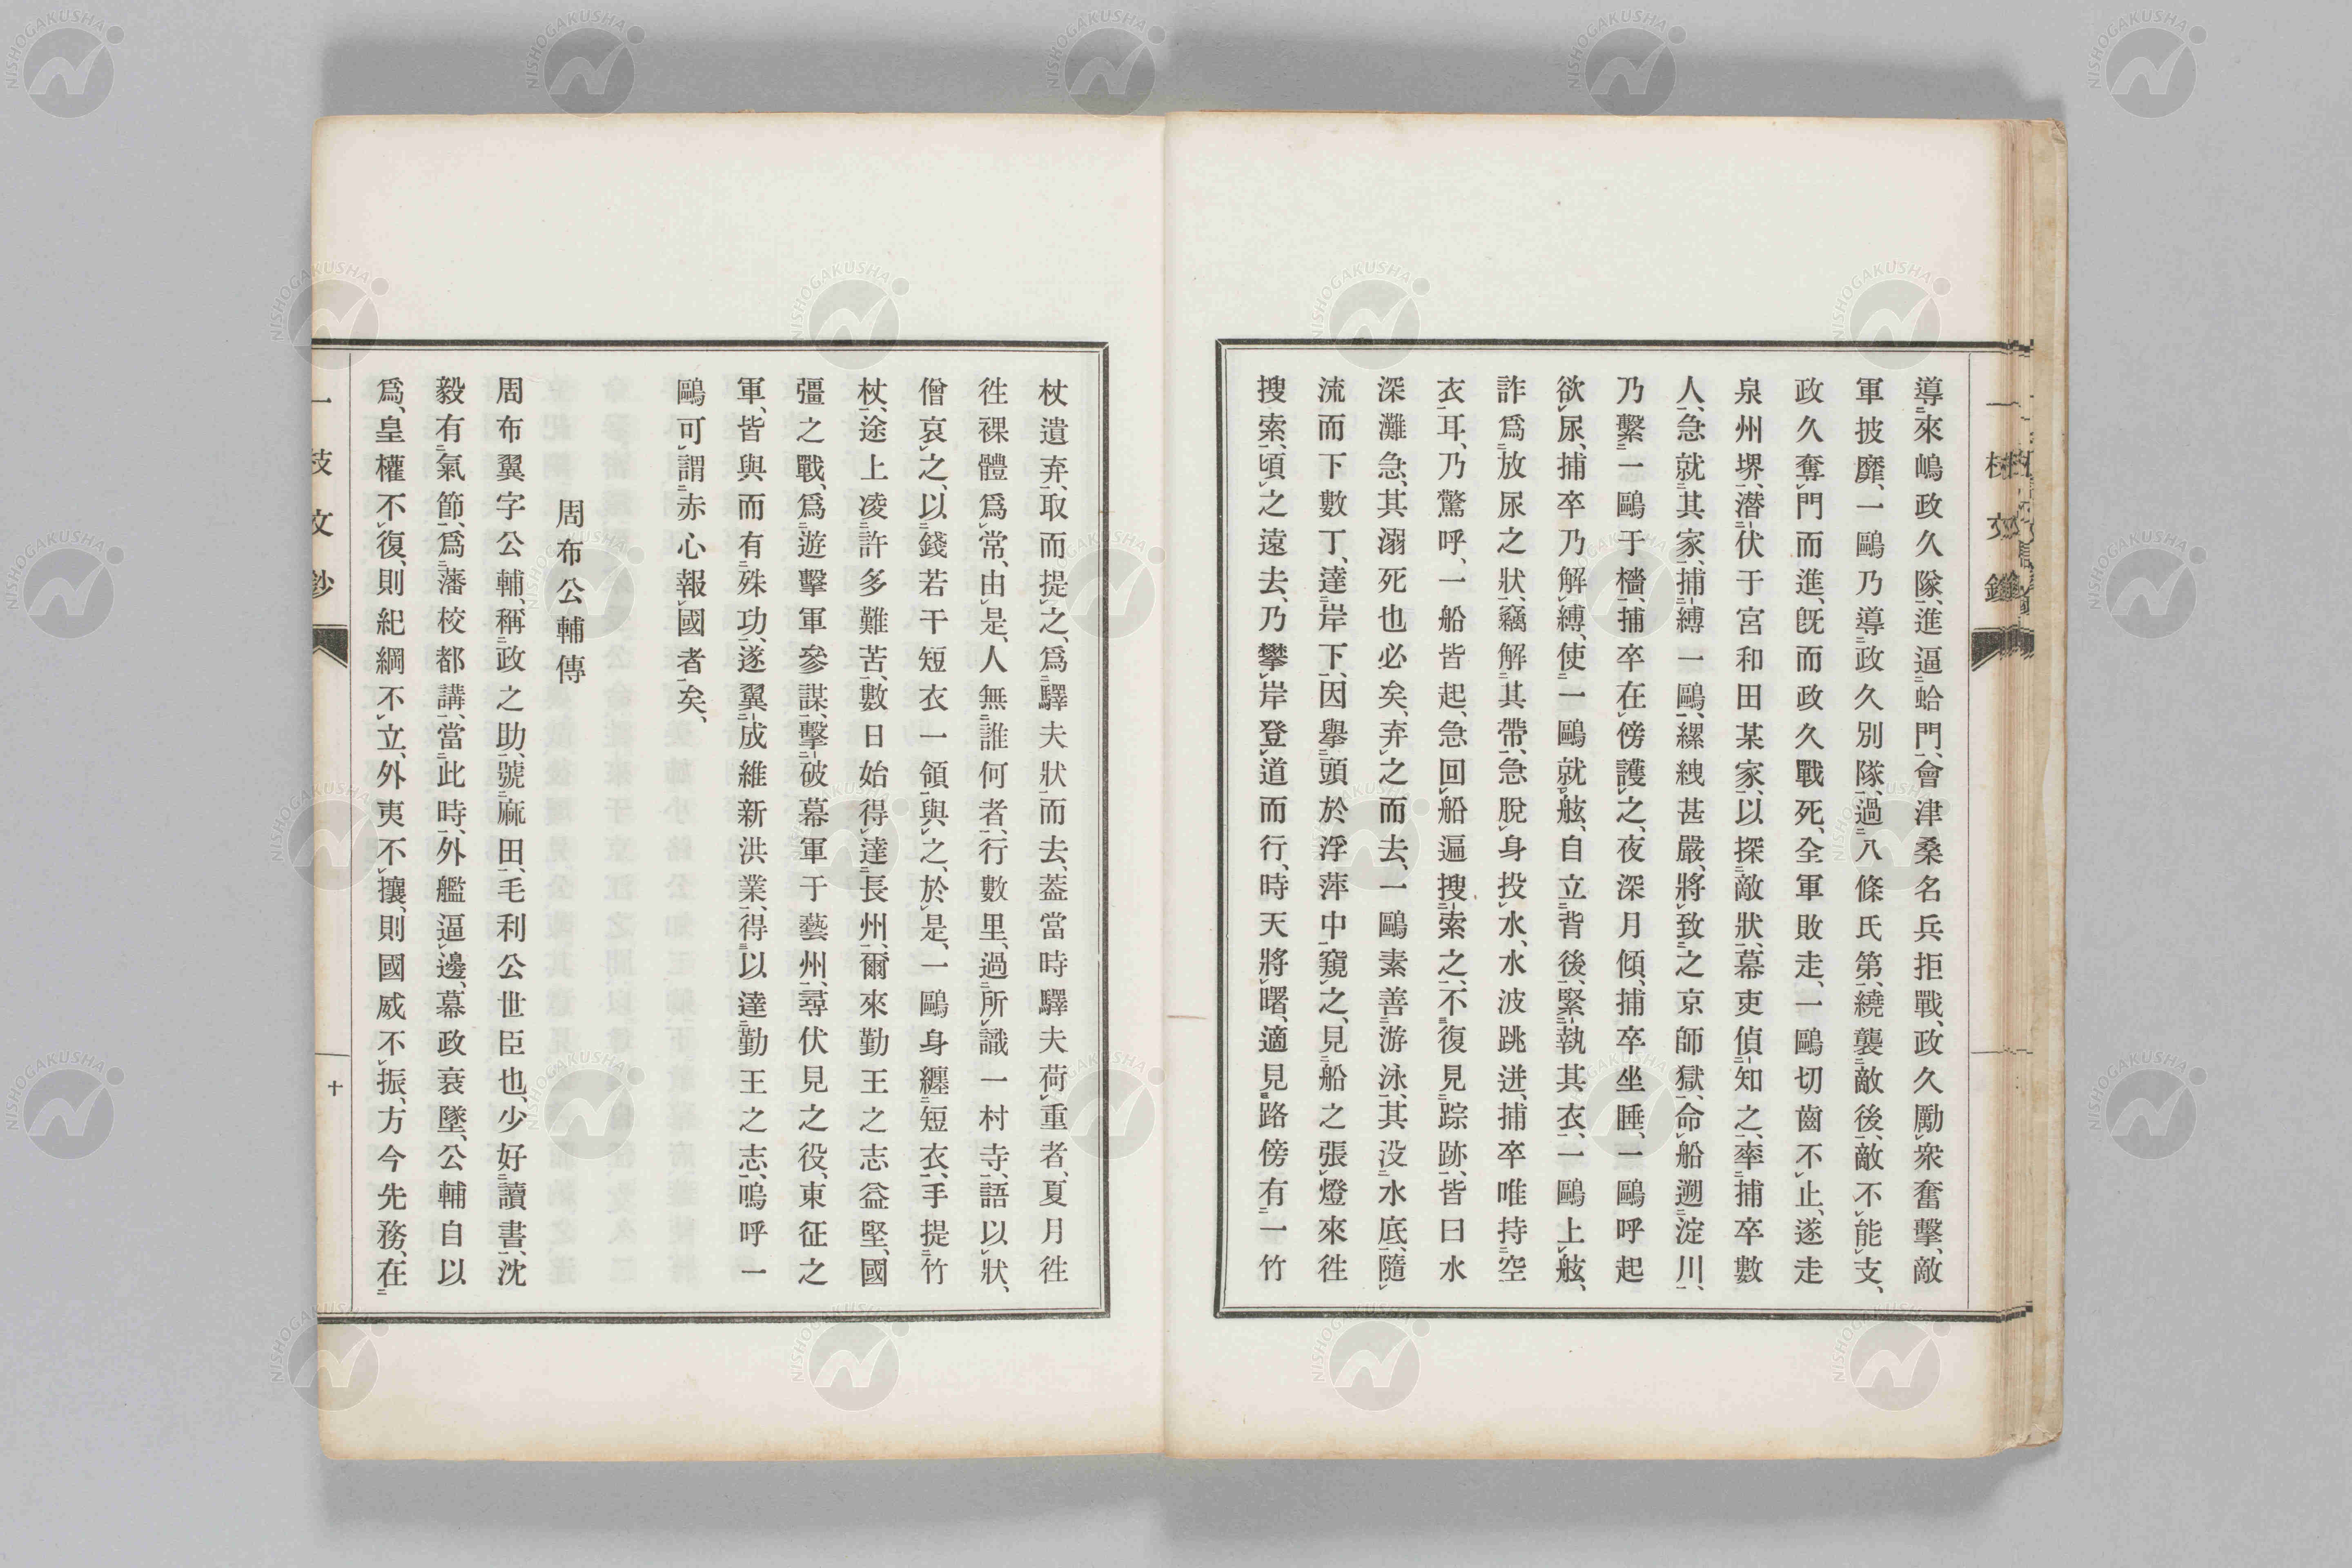 導來嶋政久隊、進逼蛤門、會津桑名兵拒戰、政久勵衆奮擊、敵
軍披靡、一鷗乃導政久別隊、過八條氏第、繞襲敵後、敵不能支、
政久奪門而進、既而政久戰死、全軍敗走、一鷗切齒不止、遂走
泉州堺、潜伏于宮和田某家、以探敵狀、幕吏偵知之、率捕卒數
人、急就其家、捕縛一鷗、縲絏甚嚴、將致之京師獄、命船遡淀川、
乃繫一鷗于檣、捕卒在傍護之、夜深月傾、捕卒坐睡、一鷗呼起
欲尿、捕卒乃解縛、使一鷗就舷、自立背後、緊執其衣、一鷗上舷、
詐爲放尿之狀、竊解其帶、急脫身投水、水波跳迸、捕卒唯持空
衣耳、乃驚呼、一船皆起、急回船遍搜索之、不復見踪跡、皆曰水
深灘急、其溺死也必矣、弃之而去、一鷗素善游泳、其沒水底、隨
流而下數丁、達岸下、因擧頭於浮萍中、窺之、見船之張燈來徃
搜索、頃之遠去、乃攀岸登道而行、時天將曙、適見路傍有一竹
杖遺弃、取而提之、爲驛夫狀而去、蓋當時驛夫荷重者、夏月徃
徃裸體爲常、由是、人無誰何者、行數里、過所識一村寺、語以狀、
僧哀之、以錢若干短衣一領與之、於是、一鷗身纏短衣、手提竹
杖、途上凌許多難苦、數日始得達長州、爾來勤王之志益堅、國
彊之戰、爲遊擊軍參謀、擊破幕軍于藝州、尋伏見之役、東征之
軍、皆與而有殊功、遂翼成維新洪業、得以達勤王之志、嗚呼一
鷗可謂赤心報國者矣、
周布公輔傳
周布翼字公輔、稱政之助、號麻田、毛利公世臣也、少好讀書、沈
毅有氣節、爲藩校都講、當此時、外艦逼邊、幕政衰墜、公輔自以
爲、皇權不復、則紀綱不立、外夷不攘、則國威不振、方今先務、在
一枝文鈔
十